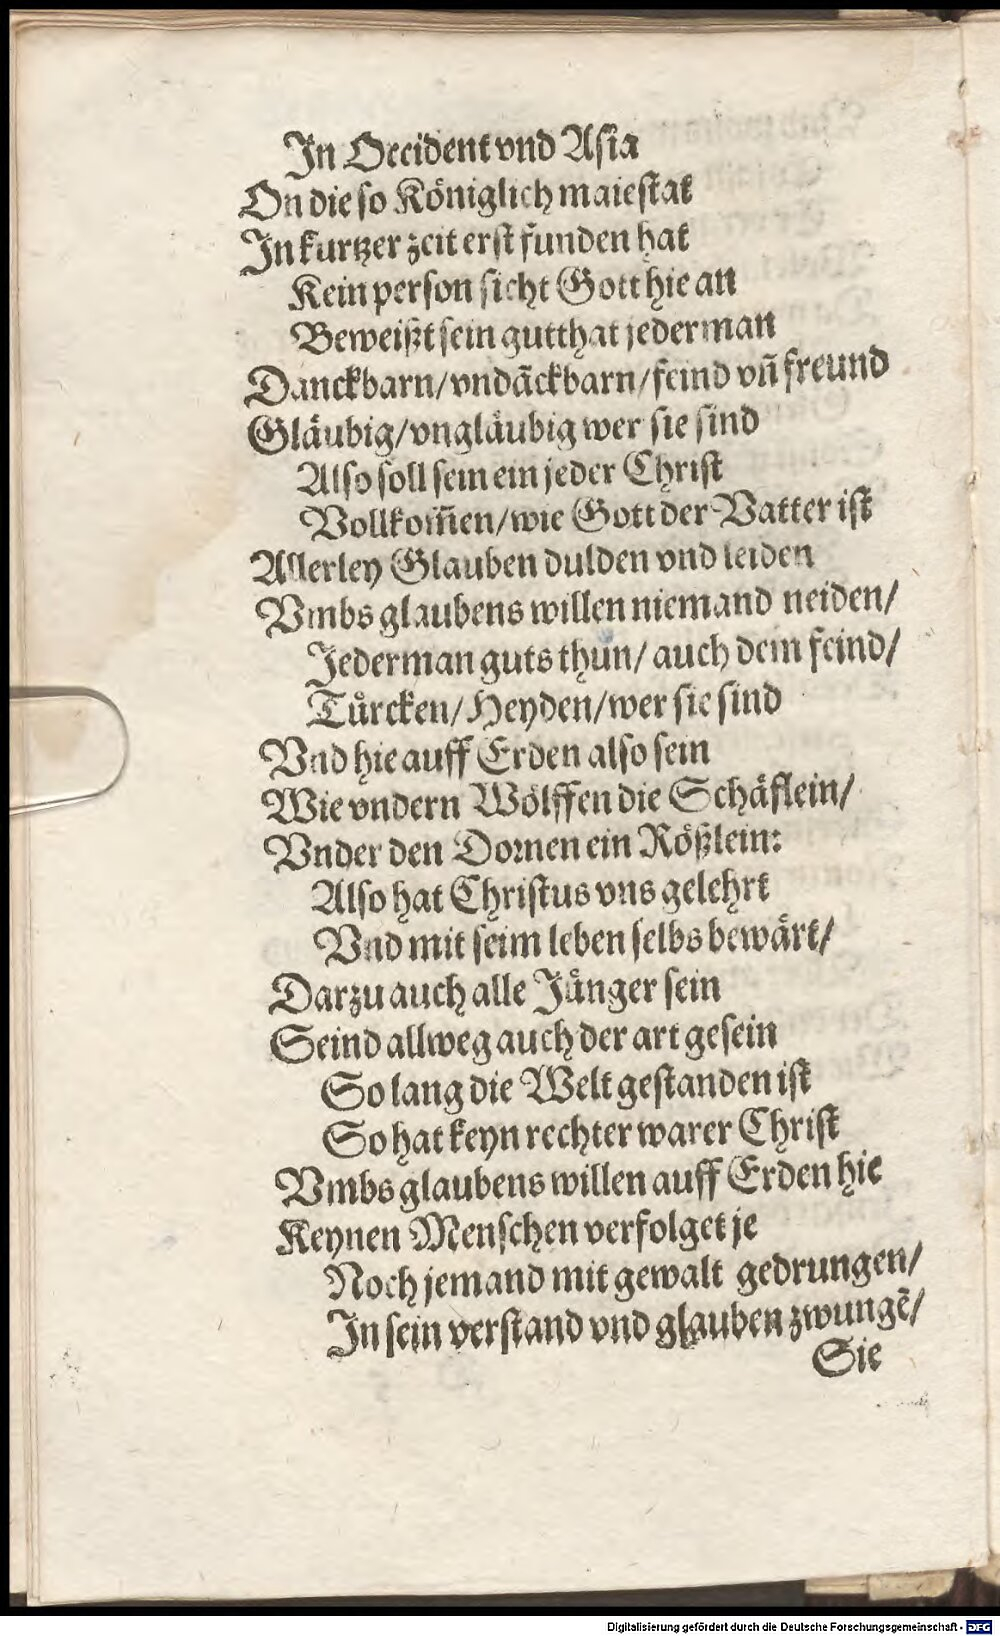 In Occident vnd Asia
On die so Königlich maiestat
In kurtzer zeit erst funden hat
Kein person sicht Gott hie an
Beweißt sein gutthat jederman
Danckbarn/vndāckbarn/feind vn̄ freund
Gläubig/vngläubig wer sie sind
Also soll sein ein jeder Christ
Vollkom̄en/wie Gott der Vatter ist
Allerley Glauben dulden vnd leiden
Vmbs glaubens willen niemand neiden/
Jederman guts thun/ auch dem feind/
Tůrcken/Heyden/wer sie sind
Vnd hie auff Erden also sein
Wie vndern Wölffen die Schäflein/
Vnder den Dornen ein Rößlein:
Also hat Christus vns gelehrt
Vnd mit seim leben selbs bewärt/
Darzu auch alle Jünger sein
Seind allweg auch der art gesein
So lang die Welt gestanden ist
So hat keyn rechter warer Christ
Vmbs glaubens willen auff Erden hie
Keynen Menschen verfolget je
Noch jemand mit gewalt gedrungen/
In sein verstand vnd glauben zwungē/
Sie
Digitalisierung gefördert durch die Deutsche Forschungsgemeinschaft - DFG